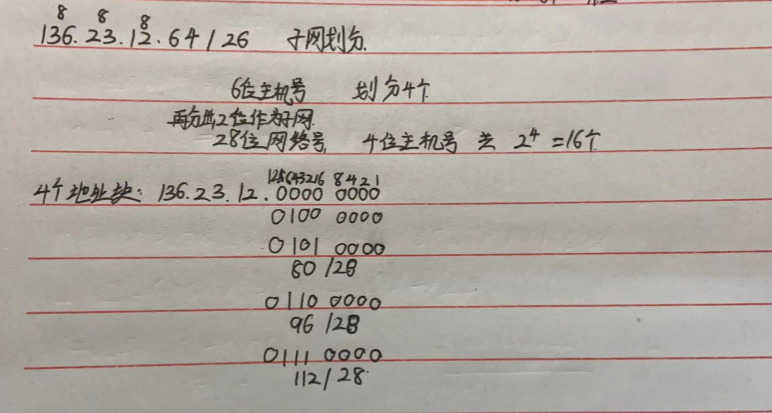 8 8 8
136.23.12.64/26 子网划分
6位主机号 划分4个
再分出2位作为子网
28位网络号 4位主机号 共 2⁴=16个
128 64 32 16 8 4 2 1
4个地址块: 136.23.12.0000 0000
0100 0000
0101 0000
80/28
0110 0000
96/28
0111 0000
112/28